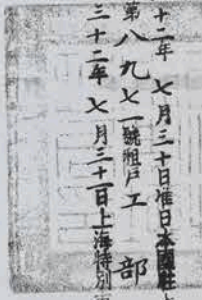 十二年 七月三十日准日本國駐
第八九七一號租戶工 部
三十二年 七月三十一日上海特別